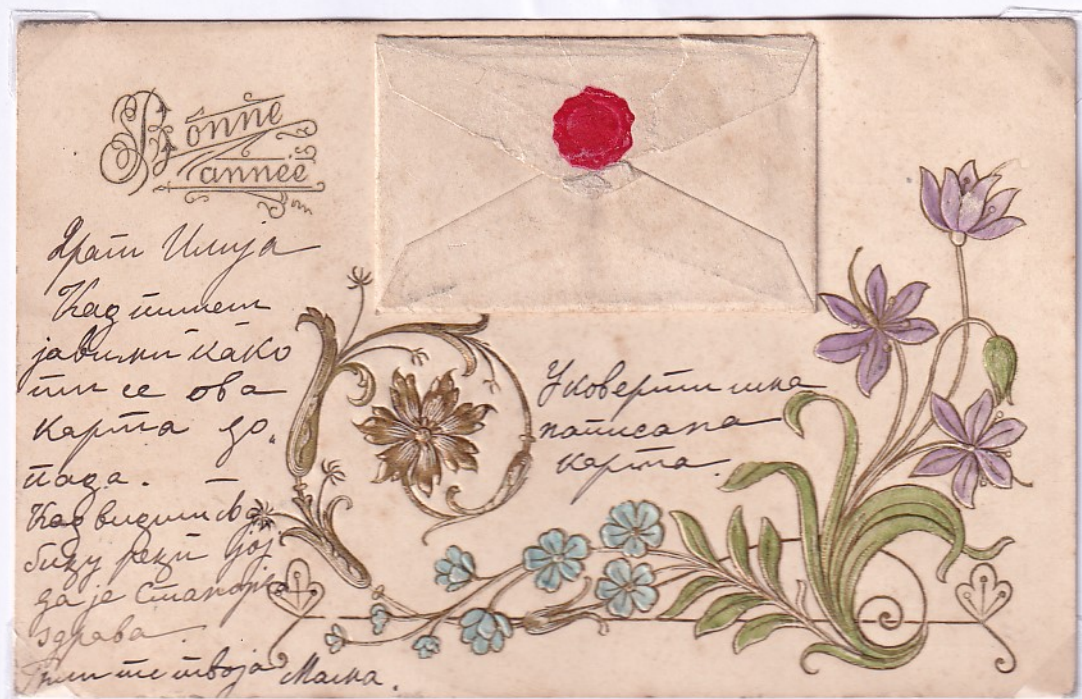 Bonne
année
Драги Илија
Кад пишеш
јави ми како
ти се ова
карта до„
пада.
Кад видиш Ба
бицу реци јој
да је Станојка
здрава.
твоја Маска.
У коверти има
написана
карта.